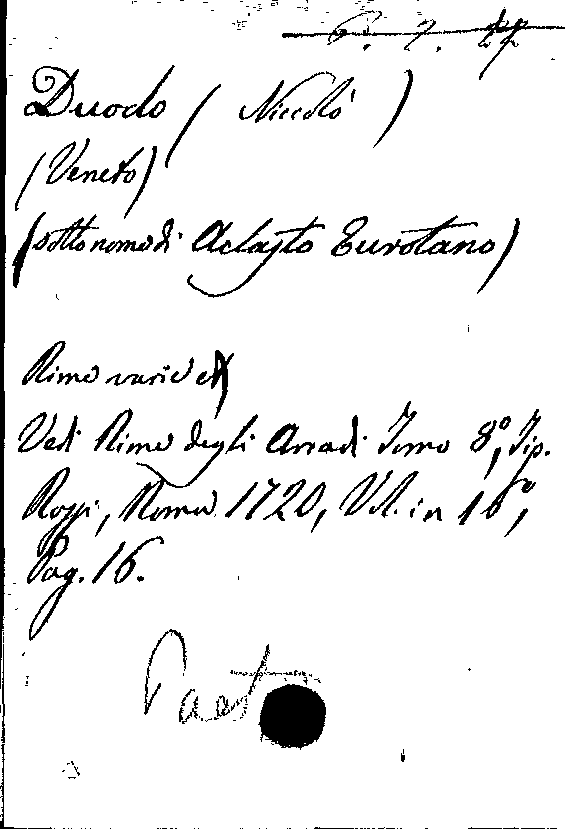 6. 7. 27
Duodo (Niccolò)
(Veneto)
(sotto nome di Aclasto Eurotano)
Rime varie
Vedi Rime degli Arcadi Tomo 8º, Tip.
Rossi, Roma 1720, Vol. in 16º,
Pag. 16.
Poet